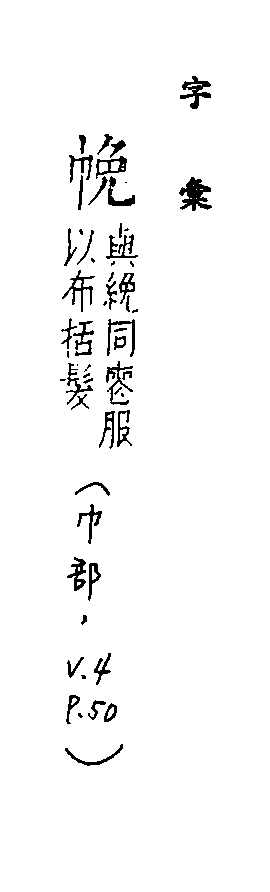 字彙
與絻同喪服
以布括髮
(巾部,V.4 P.50)